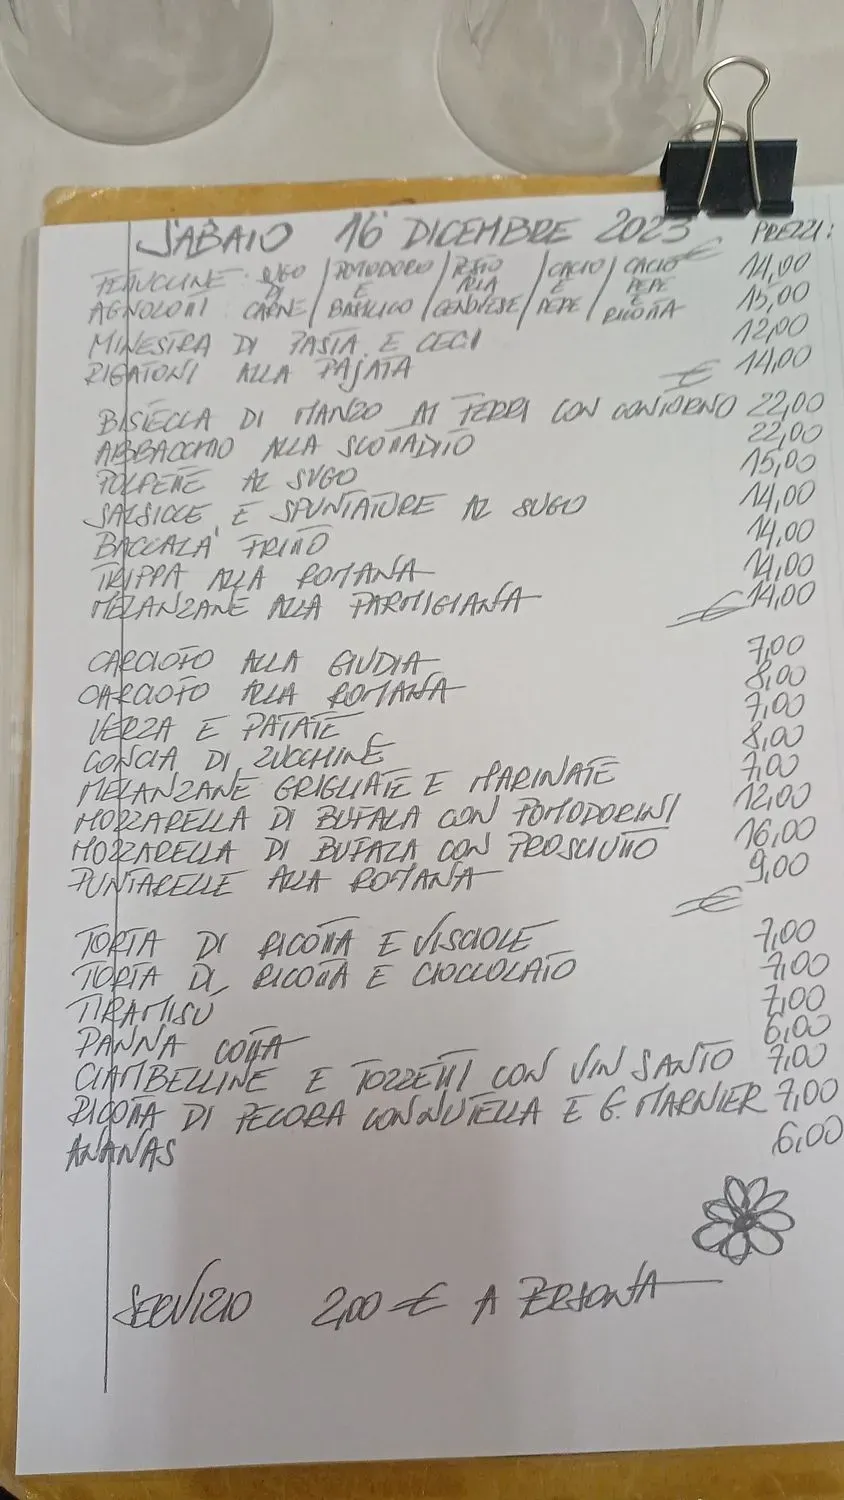 SABATO 16 DICEMBRE 2023 PREZZI:
FETTUCCINE SUGO / POMODORO / PESTO / CACIO / CACIO € 14,00
DI E ALLA E PEPE
AGNOLOTTI CARNE / BASILICO / GENOVESE / PEPE / E RICOTTA 15,00
MINESTRA DI PASTA E CECI 12,00
RIGATONI ALLA PAJATA € 14,00
BISTECCA DI MANZO AI FERRI CON CONTORNO 22,00
ABBACCHIO ALLA SCOTTADITO 22,00
POLPETTE AL SUGO 15,00
SALSICCE E SPUNTATURE AL SUGO 14,00
BACCALA' FRITTO 14,00
TRIPPA ALLA ROMANA 14,00
MELANZANE ALLA PARMIGIANA € 14,00
CARCIOFO ALLA GIUDIA 7,00
CARCIOFO ALLA ROMANA 8,00
VERZA E PATATE 7,00
CONCIA DI ZUCCHINE 8,00
MELANZANE GRIGLIATE E MARINATE 7,00
MOZZARELLA DI BUFALA CON POMODORINI 12,00
MOZZARELLA DI BUFALA CON PROSCIUTTO 16,00
PUNTARELLE ALLA ROMANA 9,00
€
TORTA DI RICOTTA E VISCIOLE 7,00
TORTA DI RICOTTA E CIOCCOLATO 7,00
TIRAMISÚ 7,00
PANNA COTTA 6,00
CIAMBELLINE E TOZZETTI CON VIN SANTO 7,00
RICOTTA DI PECORA CON NUTELLA E G. MARNIER 7,00
ANANAS 6,00
SERVIZIO 2,00 € A PERSONA